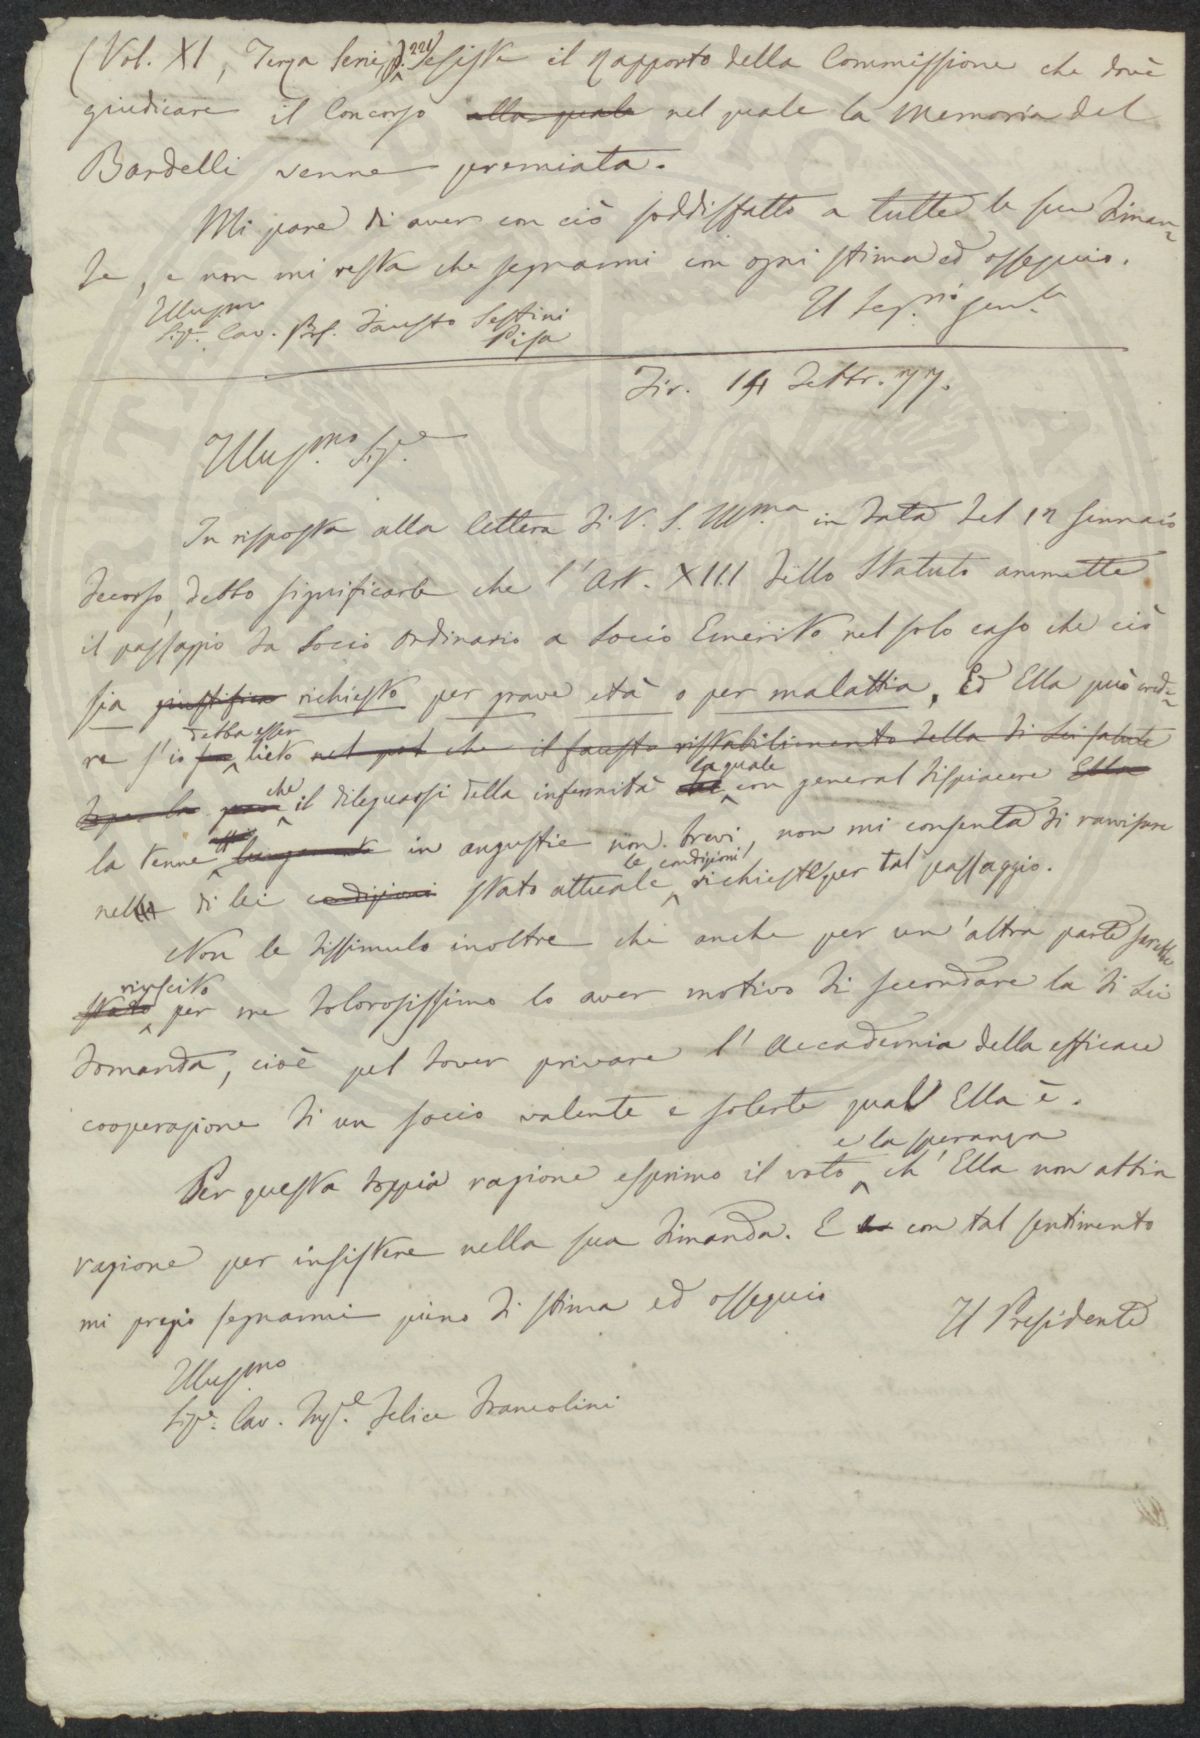 (Vol. XI, Terza Serie, p. 221) esiste il Rapporto della Commissione che dovè
giudicare il Concorso alla quale nel quale la Memoria del
Bardelli venne premiata.
Mi pare di aver con ciò soddisfatto a tutte le sue diman=
de, e non mi resta che segnarmi con ogni stima ed ossequio.
Illusmo
Sigr. Cav. Prof. Fausto Sestini
Pisa
Il Segrio Genle
Fir. 14 Febbr. 77.
Illusmo Sigre
In risposta alla lettera di V. S. Illma in data del 17 Gennaio
decorso, debbo significarle che l'Art. XIII dello Statuto ammette
il passaggio da Socio Ordinario a Socio Emerito nel solo caso che ciò
sia giustifica richiesto per grave età o per malattia. Ed Ella può crede=
debba esser
re s'io lieto nel che il fausto ristabilimento della di Lei salute
che il dileguarsi della infermità che la quale con general dispiacere Ella
la tenne lungamente in angustie non brevi, non mi consenta di ravvisare
nel di lei condizioni stato attuale le condizioni richieste per tal passaggio.
Non le dissimulo inoltre che anche per un'altra parte sarebbe
stato riuscito per me dolorosissimo lo aver motivo di secondare la di Lei
domanda, cioè pel dover privare l'Accademia della efficace
cooperazione di un socio valente e solerte qual Ella è.
Per questa doppia ragione esprimo il voto e la speranza ch'Ella non abbia
ragione per insistere nella sua dimanda. E con tal sentimento
mi pregio segnarmi pieno di stima ed ossequio
Il Presidente
Illusmo
Sigre. Cav. Inge. Felice Francolini